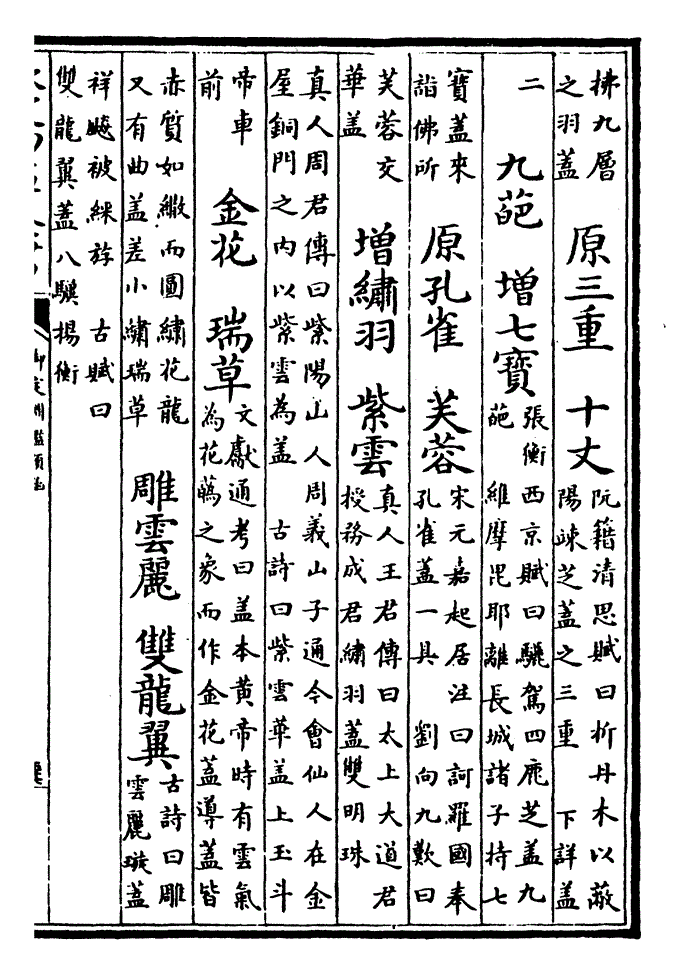 拂九層
之羽蓋
原三重 十丈
阮籍清思賦曰折丹木以蔽
陽竦芝蓋之三重 下詳蓋
二
九葩 增七寶
張衡西京賦曰驪駕四鹿芝蓋九
葩 維摩毘耶離長城諸子持七
寶蓋來
詣佛所
原孔雀 芙蓉
宋元嘉起居注曰訶羅國奉
孔雀蓋一具 劉向九歎曰
芙蓉交
華蓋
增繡羽 紫雲
真人王君傳曰太上大道君
授務成君繡羽蓋雙明珠
真人周君傳曰紫陽山人周義山子通今會仙人在金
屋銅門之內以紫雲為蓋 古詩曰紫雲華蓋上玉斗
帝車
前
金花 瑞草
文獻通考曰蓋本黃帝時有雲氣
為花蘤之象而作金花蓋導蓋皆
赤質如繖而圖繡花龍
又有曲蓋差小繡瑞草
雕雲麗 雙龍翼
古詩曰雕
雲麗璇蓋
祥飈被綵斿 古賦曰
雙龍翼蓋八驥揚衡
御定淵鑑類函